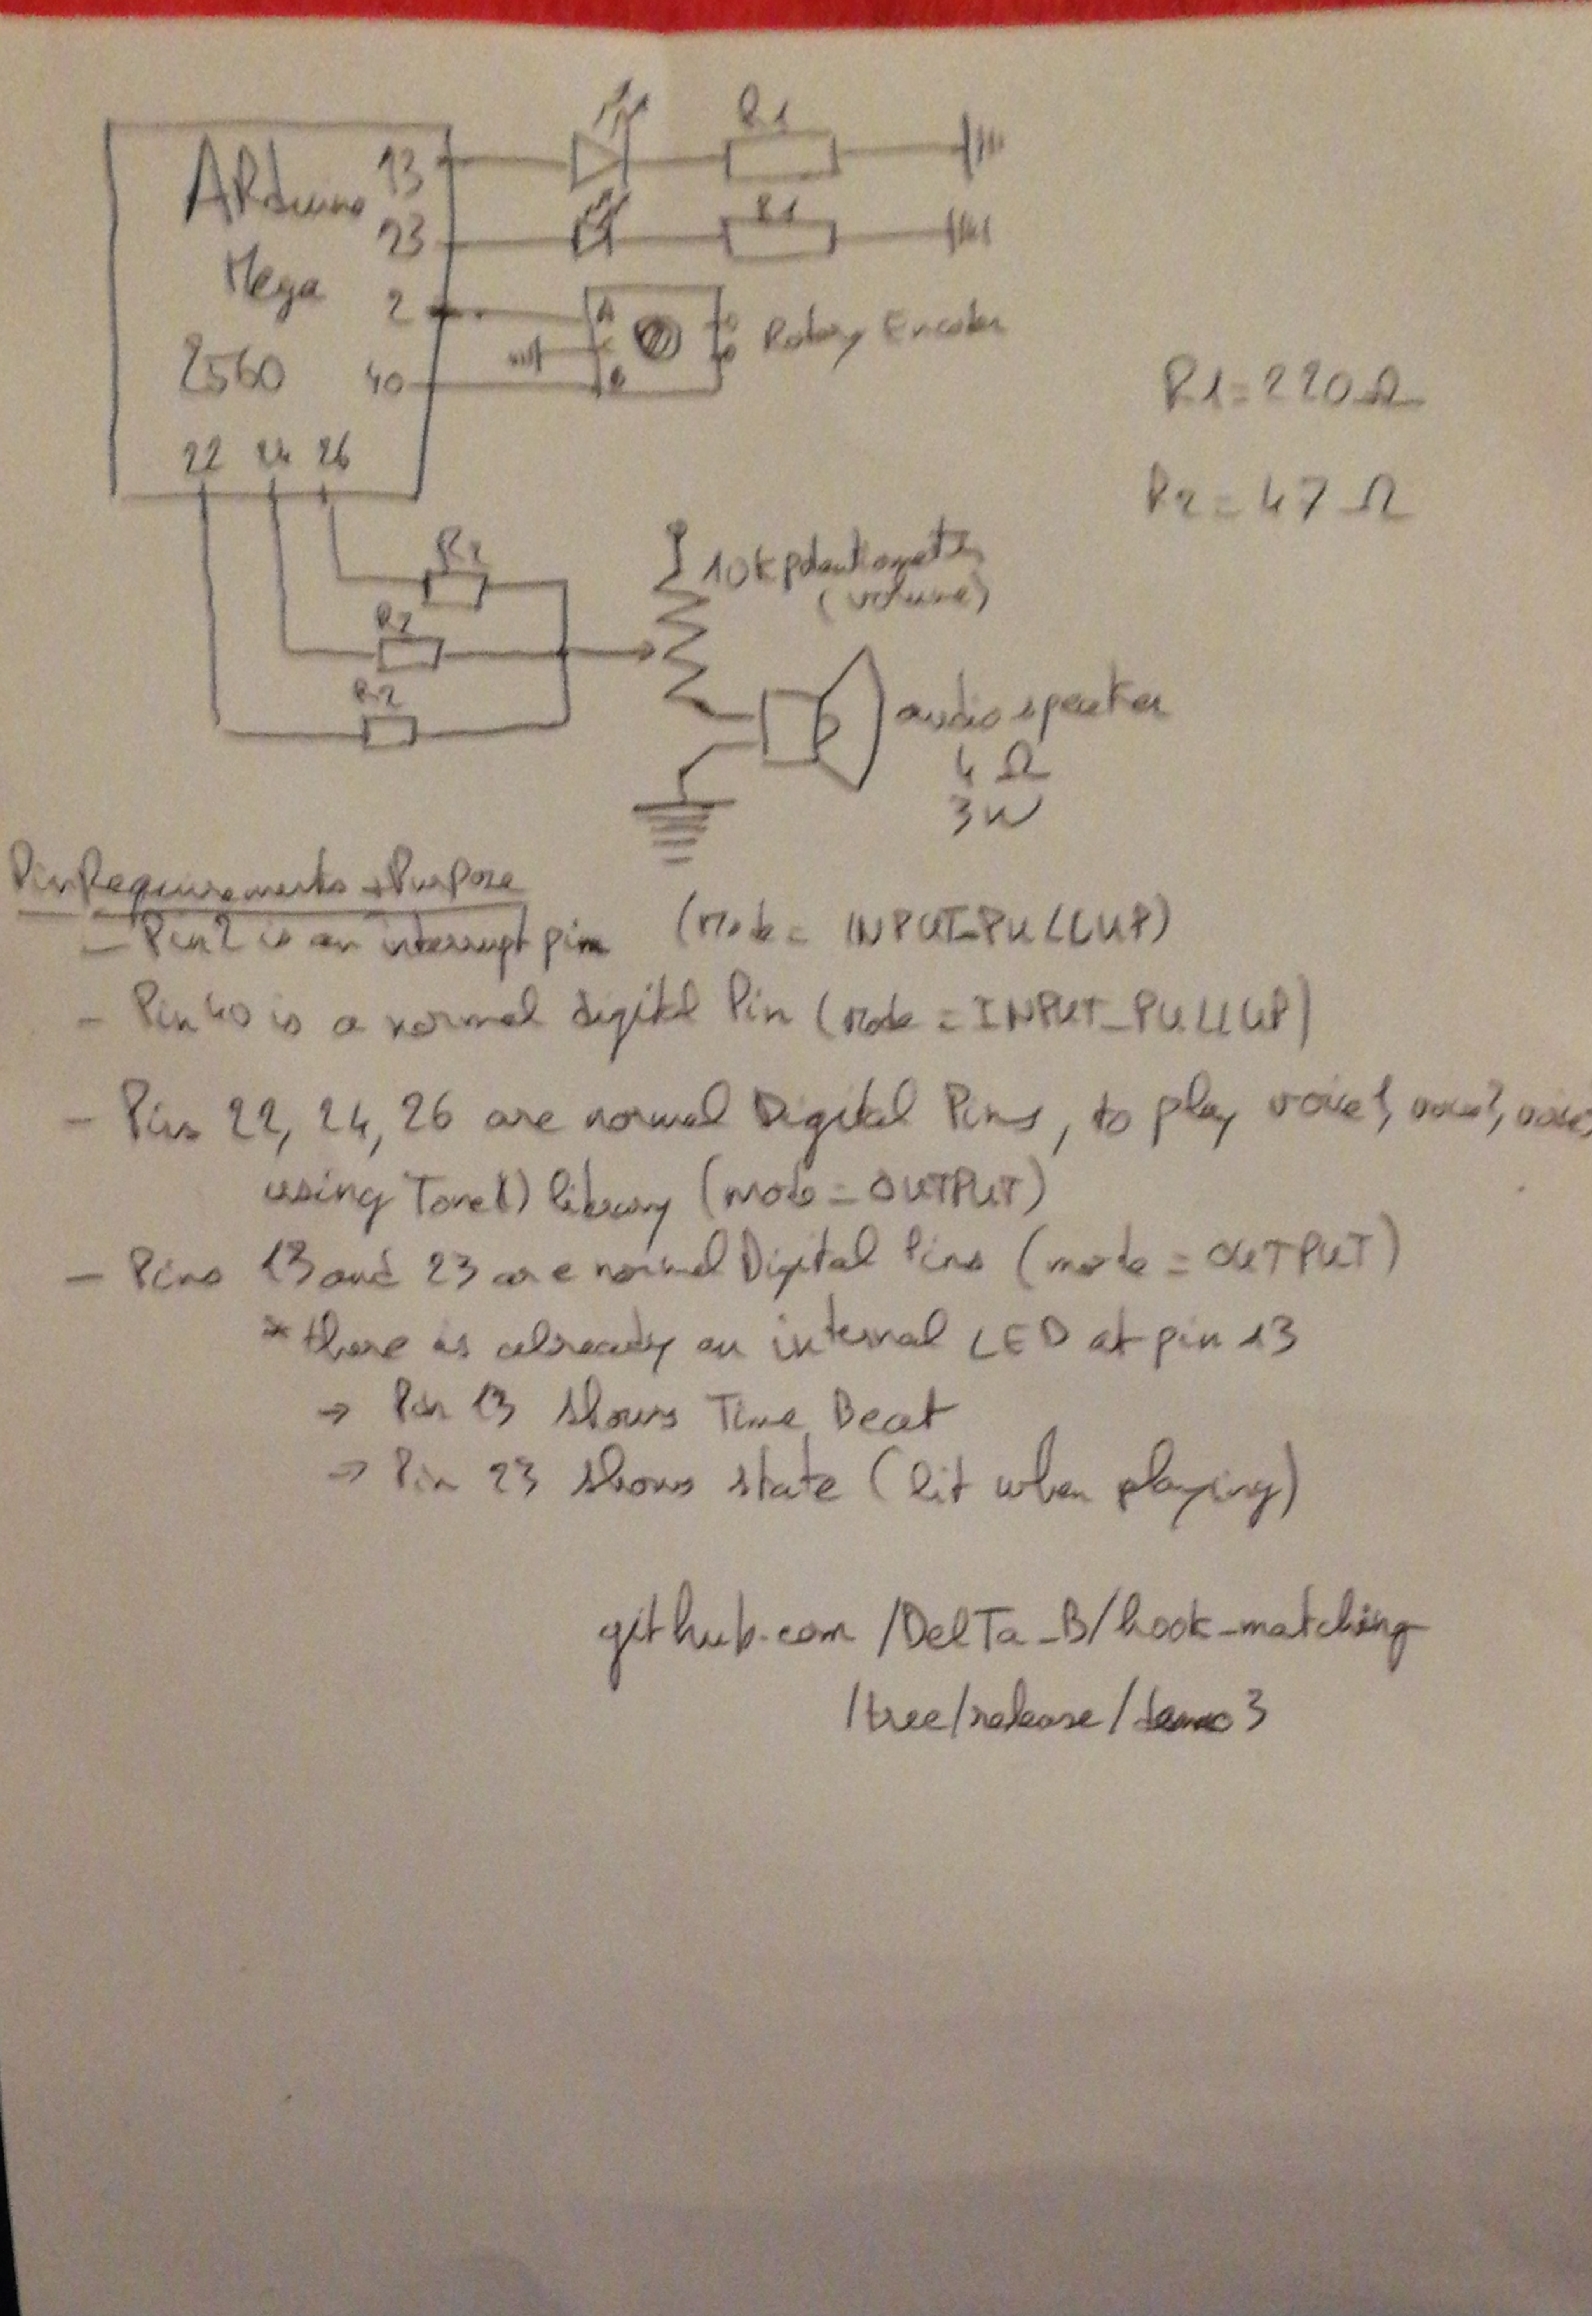 R1
ARduino 13
R1
23
Mega
2 A
C Rotary Encoder
2560 40 B
R1 = 220 Ω
22 24 26
R2 = 47 Ω
R2 10k potentiometer
(volume)
R2
R2
audio speaker
4 Ω
3W
Pin Requirements + Purpose
- Pin 2 is an interrupt pin (Mode = INPUT_PULLUP)
- Pin 40 is a normal digital Pin (Mode = INPUT_PULLUP)
- Pins 22, 24, 26 are normal Digital Pins, to play voice1, voice2, voice3
using Tone() library (mode = OUTPUT)
- Pins 13 and 23 are normal Digital Pins (mode = OUTPUT)
* there is already an internal LED at pin 13
→ Pin 13 shows Time Beat
→ Pin 23 shows state (lit when playing)
github.com /DelTa_B/hook_matching
/tree/release/demo3